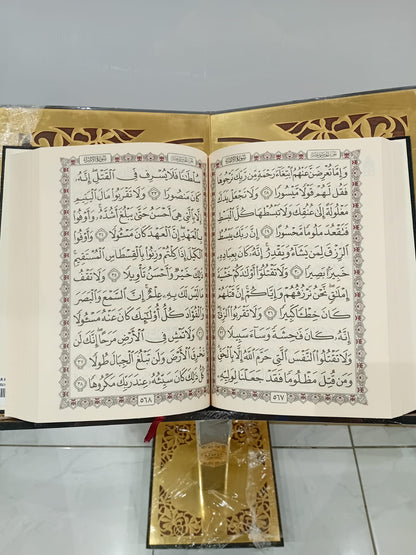 سُورَةُ الإِسْرَاءِ
وَإِمَّا تُعْرِضَنَّ عَنْهُمُ ٱبْتِغَآءَ رَحْمَةٍ مِّن رَّبِّكَ تَرْجُوهَا
فَقُل لَّهُمْ قَوْلًا مَّيْسُورًا ٢٨ وَلَا تَجْعَلْ يَدَكَ
مَغْلُولَةً إِلَىٰ عُنُقِكَ وَلَا تَبْسُطْهَا كُلَّ ٱلْبَسْطِ
فَتَقْعُدَ مَلُومًا مَّحْسُورًا ٢٩ إِنَّ رَبَّكَ يَبْسُطُ
ٱلرِّزْقَ لِمَن يَشَآءُ وَيَقْدِرُ إِنَّهُۥ كَانَ بِعِبَادِهِۦ
خَبِيرًۢا بَصِيرًا ٣٠ وَلَا تَقْتُلُوٓا۟ أَوْلَٰدَكُمْ خَشْيَةَ
إِمْلَٰقٍ نَّحْنُ نَرْزُقُهُمْ وَإِيَّاكُمْ إِنَّ قَتْلَهُمْ
كَانَ خِطْـًٔا كَبِيرًا ٣١ وَلَا تَقْرَبُوا۟ ٱلزِّنَىٰٓ
إِنَّهُۥ كَانَ فَٰحِشَةً وَسَآءَ سَبِيلًا ٣٢
وَلَا تَقْتُلُوا۟ ٱلنَّفْسَ ٱلَّتِى حَرَّمَ ٱللَّهُ إِلَّا بِٱلْحَقِّ
وَمَن قُتِلَ مَظْلُومًا فَقَدْ جَعَلْنَا لِوَلِيِّهِۦ
٥٦٧
سُورَةُ الإِسْرَاءِ
سُلْطَٰنًا فَلَا يُسْرِف فِّى ٱلْقَتْلِ إِنَّهُۥ
كَانَ مَنصُورًا ٣٣ وَلَا تَقْرَبُوا۟ مَالَ ٱلْيَتِيمِ
إِلَّا بِٱلَّتِى هِىَ أَحْسَنُ حَتَّىٰ يَبْلُغَ أَشُدَّهُۥ وَأَوْفُوا۟
بِٱلْعَهْدِ إِنَّ ٱلْعَهْدَ كَانَ مَسْـُٔولًا ٣٤ وَأَوْفُوا۟
ٱلْكَيْلَ إِذَا كِلْتُمْ وَزِنُوا۟ بِٱلْقِسْطَاسِ ٱلْمُسْتَقِيمِ
ذَٰلِكَ خَيْرٌ وَأَحْسَنُ تَأْوِيلًا ٣٥ وَلَا تَقْفُ
مَا لَيْسَ لَكَ بِهِۦ عِلْمٌ إِنَّ ٱلسَّمْعَ وَٱلْبَصَرَ
وَٱلْفُؤَادَ كُلُّ أُو۟لَٰٓئِكَ كَانَ عَنْهُ مَسْـُٔولًا
٣٦ وَلَا تَمْشِ فِى ٱلْأَرْضِ مَرَحًا إِنَّكَ لَن
تَخْرِقَ ٱلْأَرْضَ وَلَن تَبْلُغَ ٱلْجِبَالَ طُولًا ٣٧
كُلُّ ذَٰلِكَ كَانَ سَيِّئُهُۥ عِندَ رَبِّكَ مَكْرُوهًا ٣٨
٥٦٨